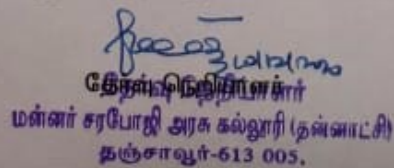 தேர்வு நெறியாளர்
மன்னர் சரபோஜி அரசு கல்லூரி (தன்னாட்சி)
தஞ்சாவூர்-613 005.